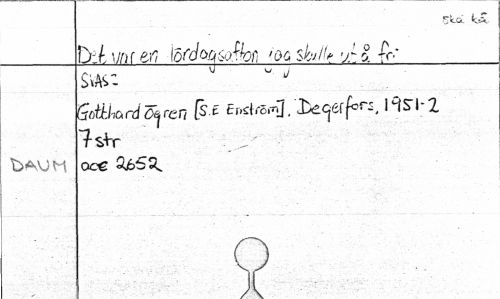 ska kä
Det var en lördagsafton jag skulle ut å fri
SVAS:
Gotthard Ögren [S.E Enström], Degerfors, 1951-2
7 str
DAUM acc 2652